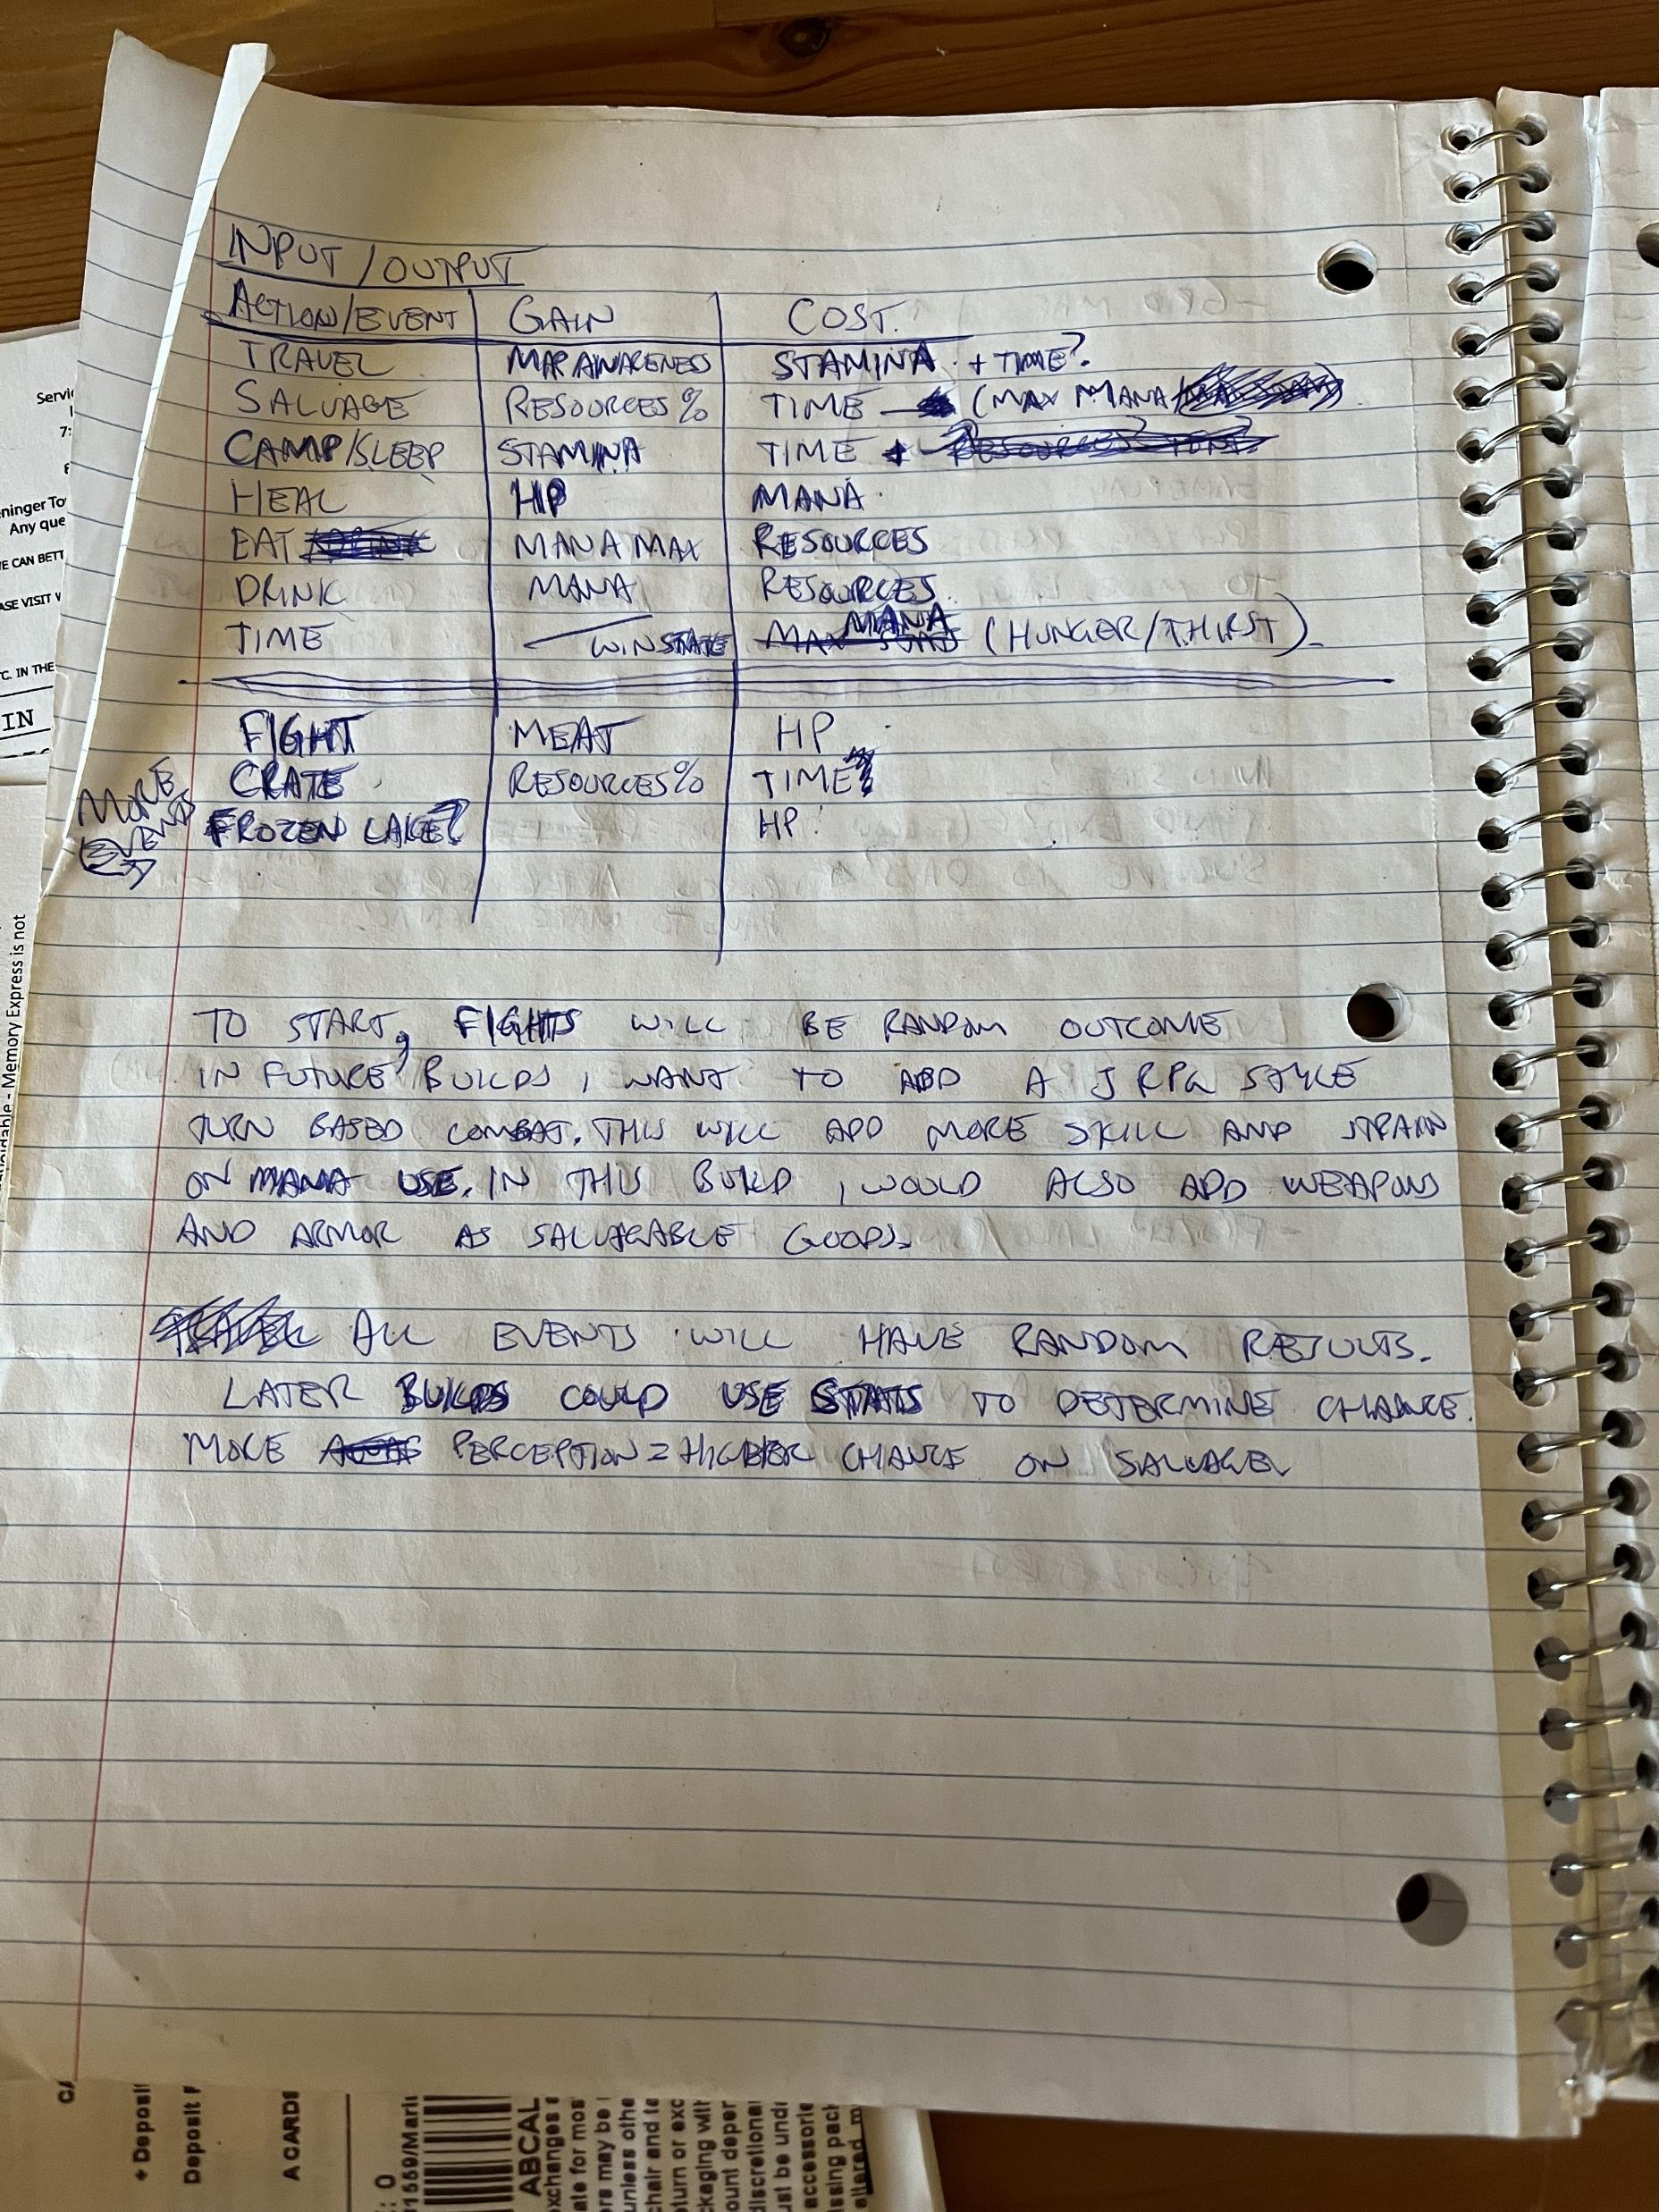 INPUT/OUTPUT
ACTION/EVENT GAIN COST.
TRAVEL MAP AWARENESS STAMINA + TIME?
SALVAGE RESOURCES % TIME (MAX MANA
CAMP/SLEEP STAMINA TIME
HEAL HP MANA
EAT MANA MAX RESOURCES
DRINK MANA RESOURCES
TIME WINSTATE MANA (HUNGER/THIRST)
FIGHT MEAT HP
CRATE RESOURCES % TIME
FROZEN LAKE? HP
MORE
EVENTS
TO START, FIGHTS WILL BE RANDOM OUTCOME
IN FUTURE BUILDS I WANT TO ADD A JRPG STYLE
TURN BASED COMBAT. THIS WILL ADD MORE SKILL AND STRAIN
ON MANA USE. IN THIS BUILD I WOULD ALSO ADD WEAPONS
AND ARMOR AS SALVAGABLE GOODS.
ALL EVENTS WILL HAVE RANDOM RESULTS.
LATER BUILDS COULD USE STATS TO DETERMINE CHANCE.
MORE PERCEPTION = HIGHER CHANCE ON SALVAGE
Servi
7:
eninger To
Any que
E CAN BETT
ASE VISIT
C. IN THE
IN
Memory Express is not
+ Deposit
Deposit
A CARDS
1559/Mari
ABCAL
exchanges
ate for mos
rs may be
unless othe
chair and te
turn or exc
ckaging with
ount deper
discretional
ust be und
accessorie
issing pac
altered